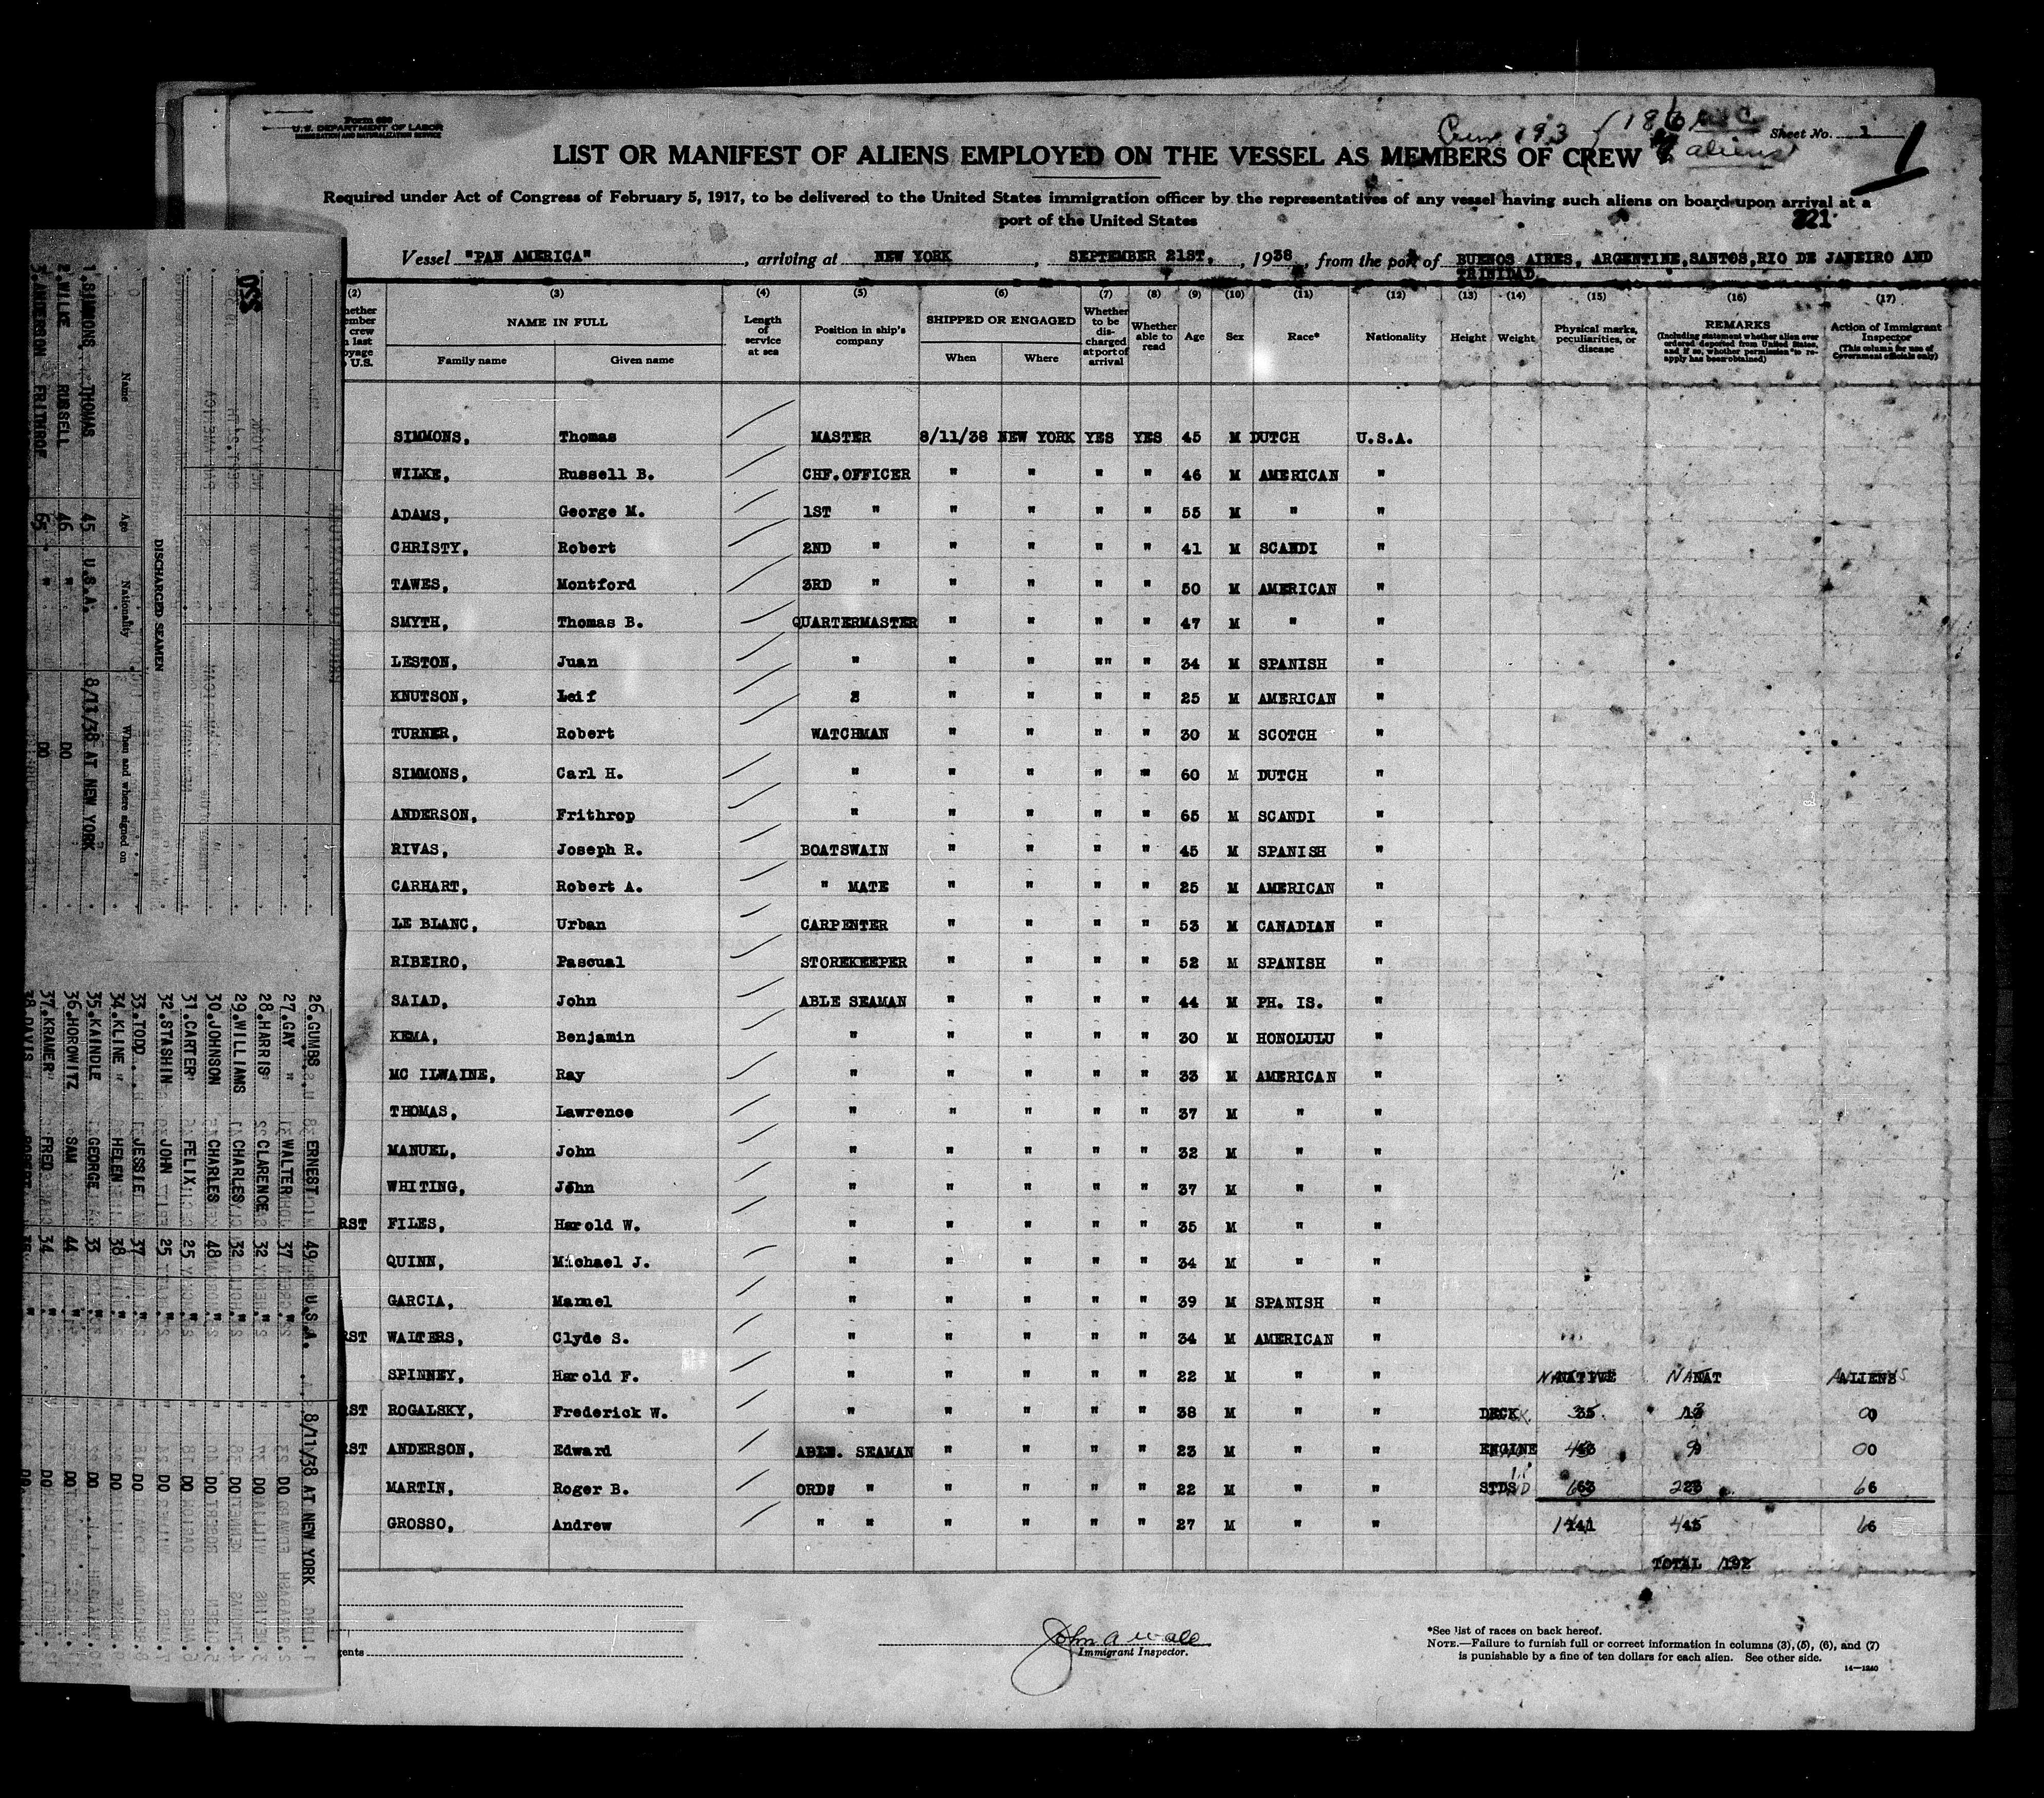 Form 680
U.S. DEPARTMENT OF LABOR
IMMIGRATION AND NATURALIZATION SERVICE
Crew 193 186 USC
aliens
Sheet No. 1
1
LIST OR MANIFEST OF ALIENS EMPLOYED ON THE VESSEL AS MEMBERS OF CREW
Required under Act of Congress of February 5, 1917, to be delivered to the United States immigration officer by the representatives of any vessel having such aliens on board upon arrival at a
port of the United States
221
Vessel "PAN AMERICA", arriving at NEW YORK, SEPTEMBER 21ST, 1938, from the port of BUENOS AIRES, ARGENTINE, SANTOS, RIO DE JANEIRO AND
TRINIDAD
(2) (3) (4) (5) (6) (7) (8) (9) (10) (11) (12) (13) (14) (15) (16) (17)
NAME IN FULL
Family name Given name
Length of service at sea
Position in ship's company
SHIPPED OR ENGAGED
When Where
Whether to be discharged at port of arrival
Whether able to read
Age Sex Race* Nationality Height Weight
Physical marks, peculiarities, or disease
REMARKS
(Including statement whether alien ever ordered deported from United States, and if so, whether permission to reapply has been obtained)
Action of Immigrant Inspector
(This column for use of Government officials only)
SIMMONS, Thomas MASTER 8/11/38 NEW YORK YES YES 45 M DUTCH U.S.A.
WILKE, Russell B. CHF.OFFICER " " " " 46 M AMERICAN "
ADAMS, George M. 1ST " " " " " 55 M " "
CHRISTY, Robert 2ND " " " " " 41 M SCANDI "
TAWES, Montford 3RD " " " " " 50 M AMERICAN "
SMYTH, Thomas B. QUARTERMASTER " " " " 47 M " "
LESTON, Juan " " " "" " 34 M SPANISH "
KNUTSON, Leif " " " " 25 M AMERICAN "
TURNER, Robert WATCHMAN " " " " 30 M SCOTCH "
SIMMONS, Carl H. " " " " " 60 M DUTCH "
ANDERSON, Frithrop " " " " " 65 M SCANDI "
RIVAS, Joseph R. BOATSWAIN " " " " 45 M SPANISH "
CARHART, Robert A. " MATE " " " " 25 M AMERICAN "
LE BLANC, Urban CARPENTER " " " " 53 M CANADIAN "
RIBEIRO, Pascual STOREKEEPER " " " " 52 M SPANISH "
SAIAD, John ABLE SEAMAN " " " " 44 M PH. IS. "
KEMA, Benjamin " " " " " 30 M HONOLULU "
MC ILWAINE, Ray " " " " " 33 M AMERICAN "
THOMAS, Lawrence " " " " " 37 M " "
MANUEL, John " " " " " 32 M " "
WHITING, John " " " " " 37 M " "
RST FILES, Harold W. " " " " " 35 M " "
QUINN, Michael J. " " " " " 34 M " "
GARCIA, Manuel " " " " " 39 M SPANISH "
RST WALTERS, Clyde S. " " " " " 34 M AMERICAN "
SPINNEY, Harold F. " " " " " 22 M " "
RST ROGALSKY, Frederick W. " " " " " 38 M " "
RST ANDERSON, Edward ABLE SEAMAN " " " " 23 M " "
MARTIN, Roger B. ORD. " " " " " 22 M " "
GROSSO, Andrew " " " " " " 27 M " "
NATIVE NAT ALIENS
DECK 35 13 0
ENGINE 43 9 0
STDS 63 23 6
141 45 6
TOTAL 192
John A Wall
Immigrant Inspector.
*See list of races on back hereof.
NOTE.—Failure to furnish full or correct information in columns (3), (5), (6), and (7)
is punishable by a fine of ten dollars for each alien. See other side.
14—1240
DISCHARGED SEAMEN
Name Age Nationality When and where signed on
1. SIMMONS, THOMAS 45 U.S.A. 8/11/38 AT NEW YORK
2. WILKE RUSSELL 46 " DO
3. ANDERSON FRITHROF 65 " DO
26. GUMBS ERNEST 49 U.S.A. 8/11/38 AT NEW YORK
27. GAY WALTER 37 " DO
28. HARRIS CLARENCE 32 " DO
29. WILLIAMS CHARLES 32 " DO
30. JOHNSON CHARLES 48 " DO
31. CARTER FELIX 25 " DO
32. STASHIN JOHN 25 " DO
33. TODD JESSIE 37 " DO
34. KLINE HELEN 38 " DO
35. KAINDLE GEORGE 33 " DO
36. HOROWITZ SAM 44 " DO
37. KRAMER FRED 34 " DO
38. DAVIS